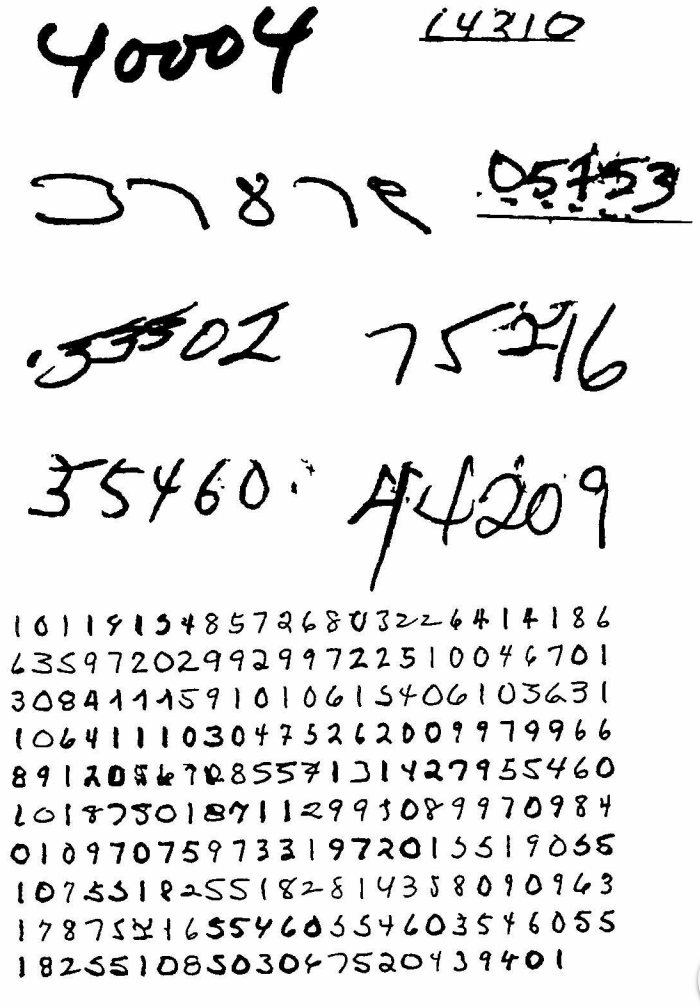 40004 14310
37878 05753
35502 75216
35460 44209
1011915485726803226414186
6359720299299722510046701
3084111591010615406103631
1064111030475262009979966
8912056708557131427955460
1018750187112993089970984
0109707597331972015519055
1075518255182814358090963
1787521655460554603546055
18255108503047520439401